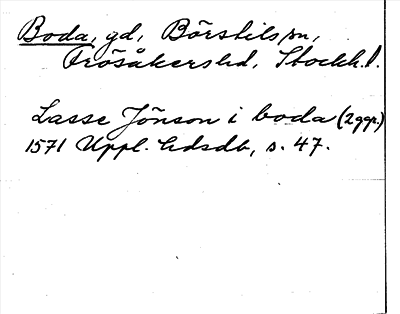 Boda, gd, Börstils sn,
Frösåkers hd, Stockh. l.
Lasse Jönson i boda (2 ggr.)
1571 Uppl. hdsdb, s. 47.